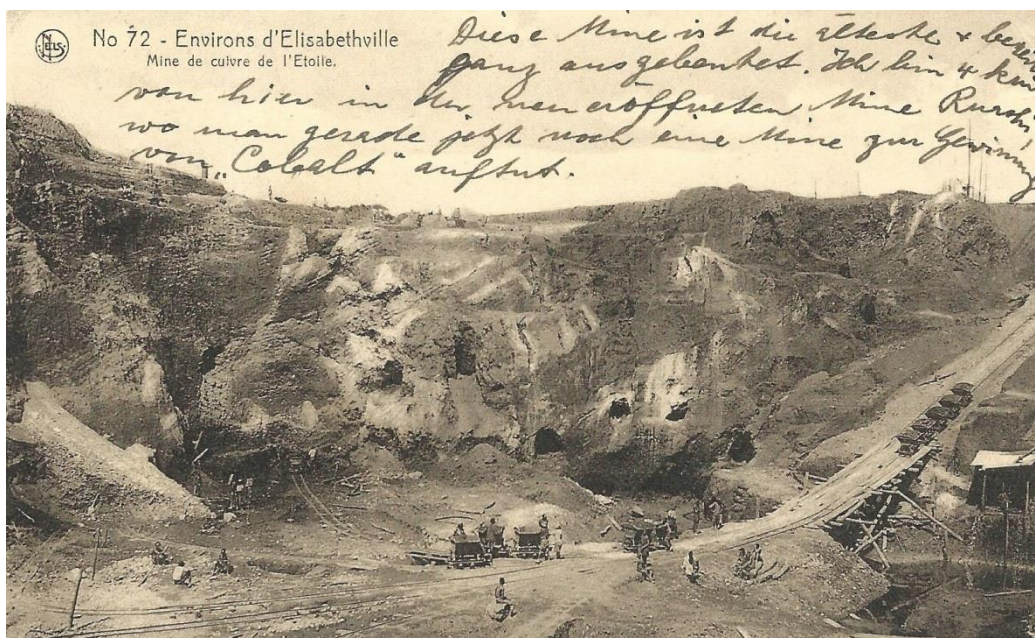 NELS
No 72 - Environs d'Elisabethville
Mine de cuivre de l'Etoile.
Diese Mine ist die älteste +
ganz ausgebeutet. Ich bin 4
von hier in der neu eröffneten Mine Ruashi,
wo man gerade jetzt noch eine Mine zur Gewinnung
von „Cobalt“ auftut.